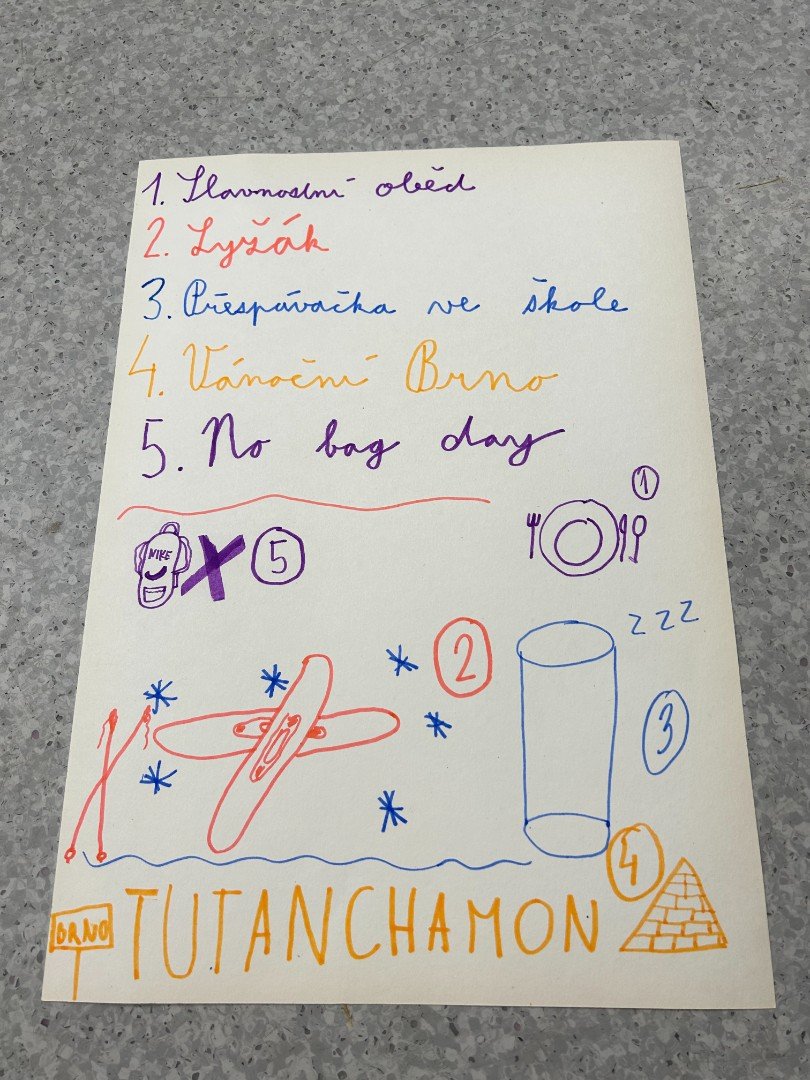 1. Slavnostní oběd
2. Lyžák
3. Přespávačka ve škole
4. Vánoční Brno
5. No bag day
1
NIKE
5
z z z
2
3
4
BRNO
TUTANCHAMON